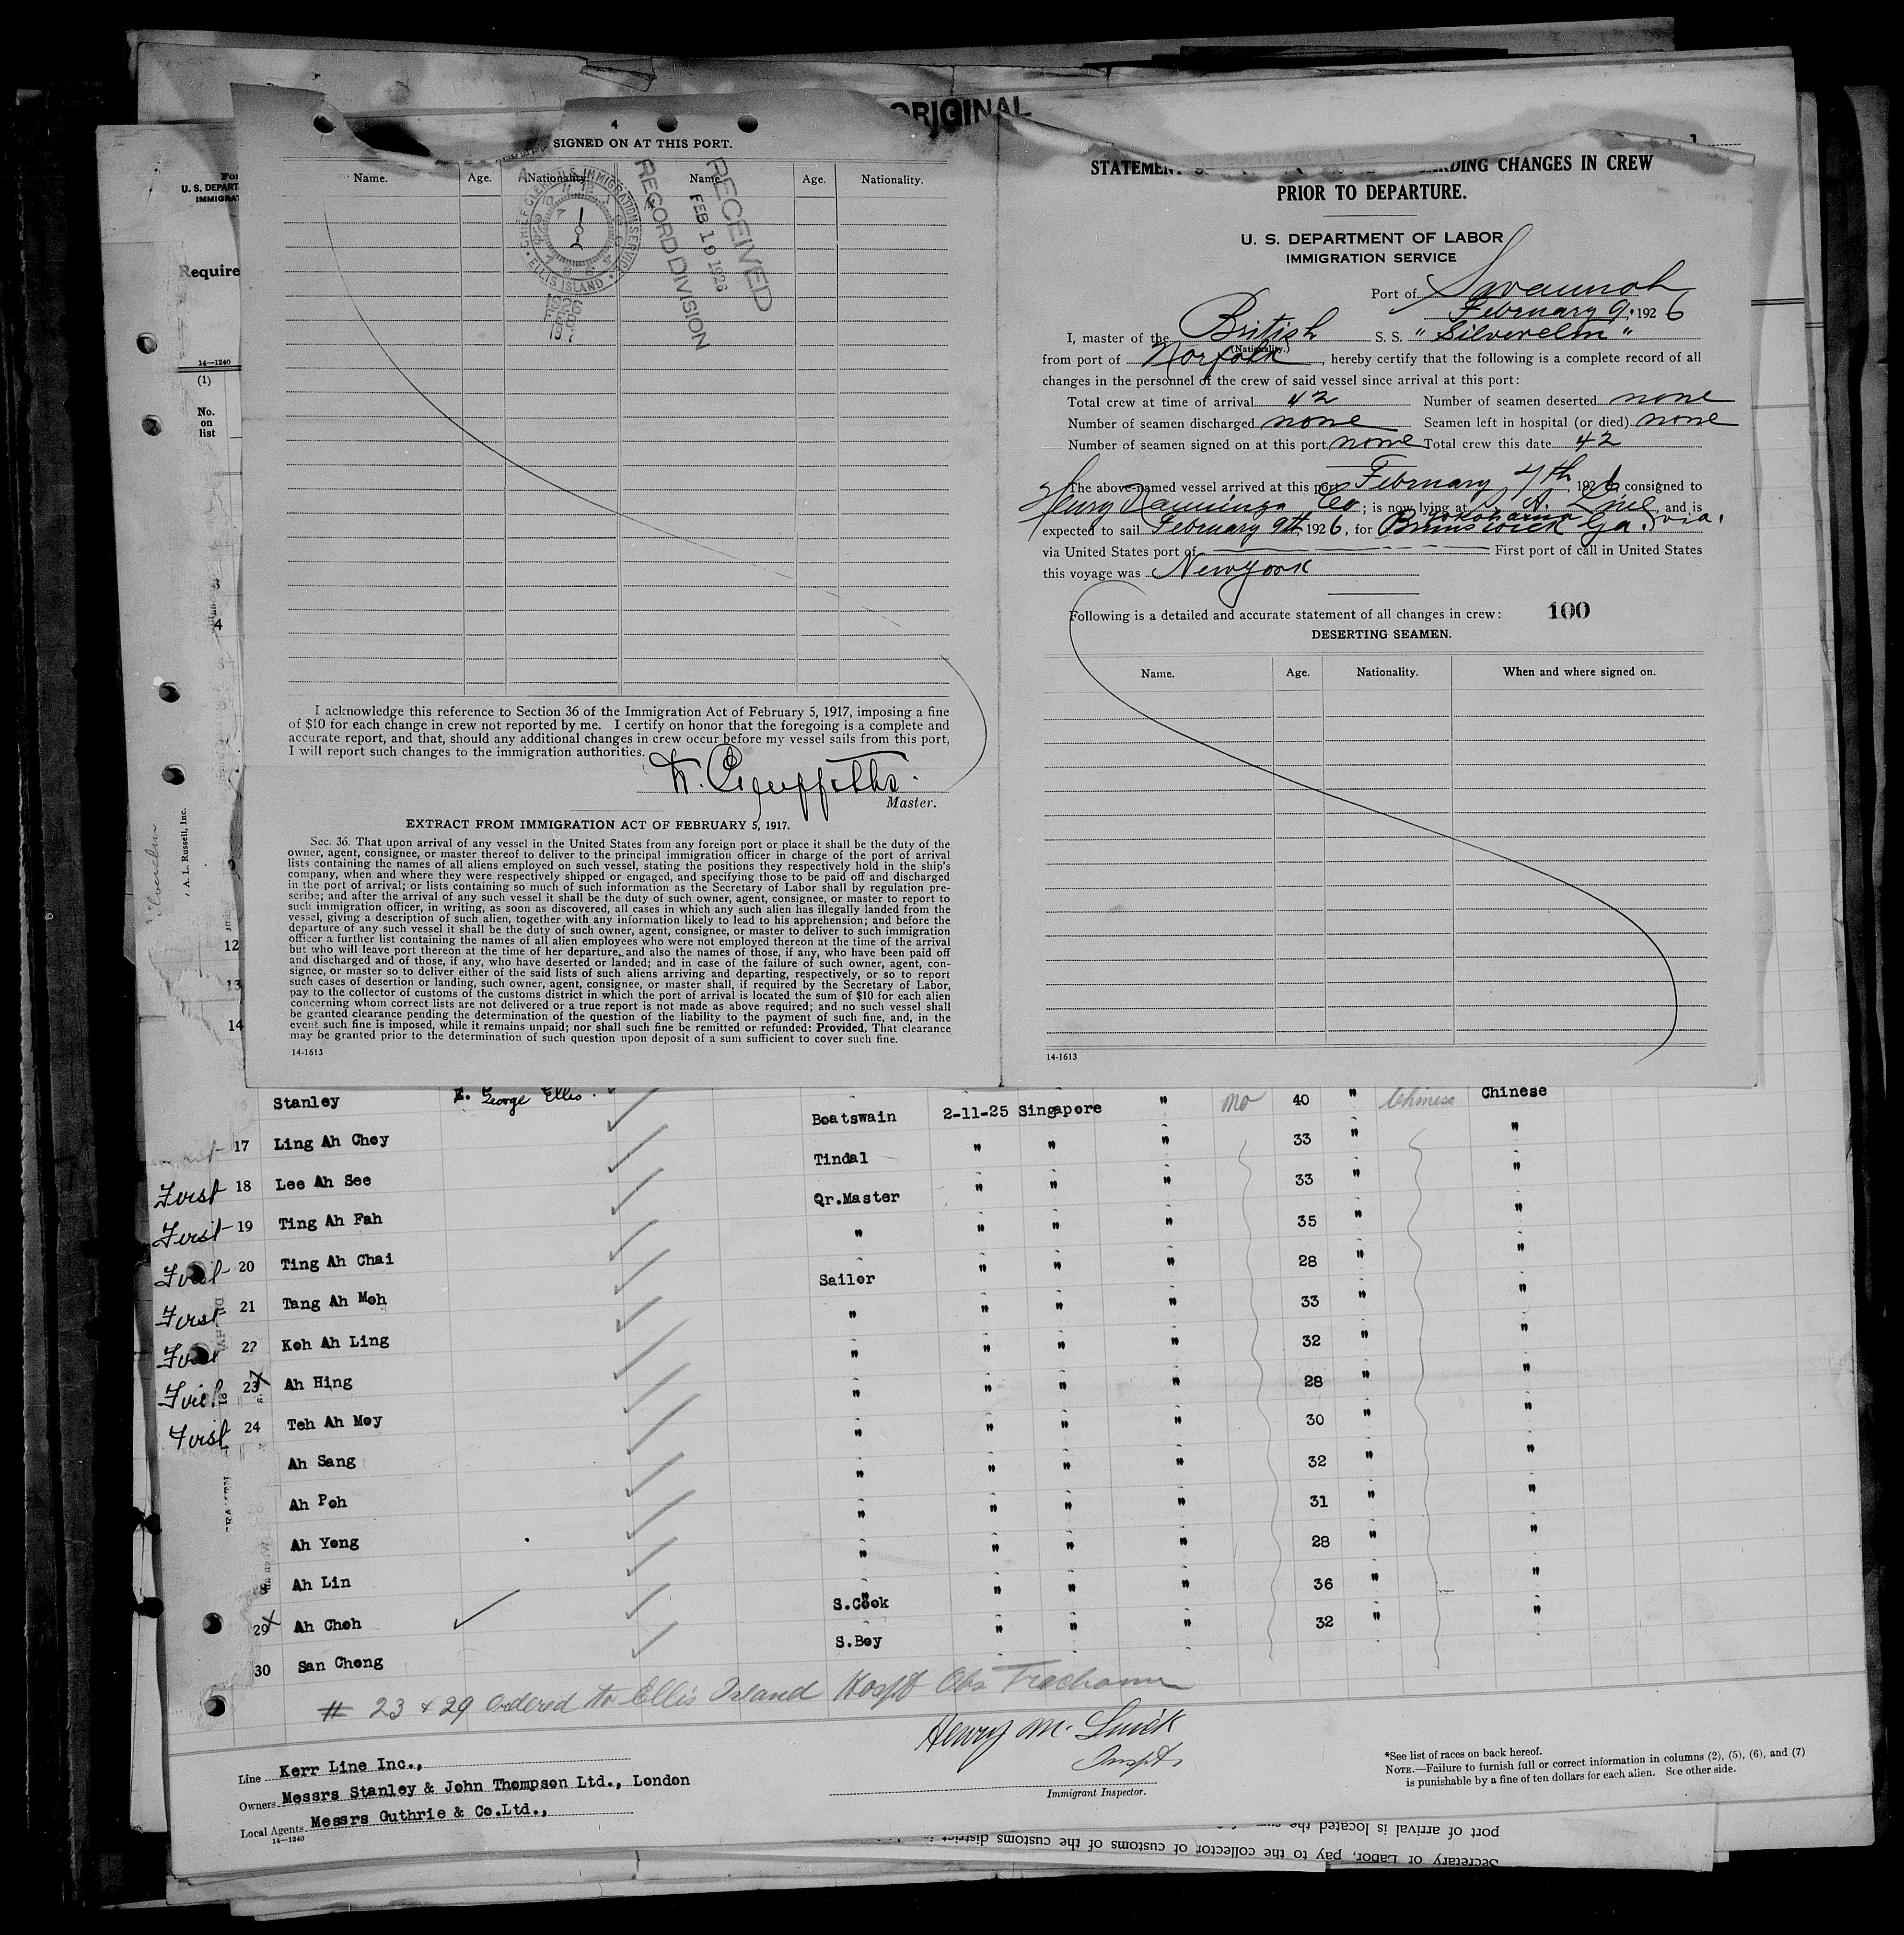 ORIGINAL
4
SIGNED ON AT THIS PORT.
Name. Age. Nationality. Name. Age. Nationality.
CHIEF CLERK U.S. IMMIGRATION SERVICE
ELLIS ISLAND
1926
FEB
RECEIVED
FEB 19 1926
RECORD DIVISION
I acknowledge this reference to Section 36 of the Immigration Act of February 5, 1917, imposing a fine
of $10 for each change in crew not reported by me. I certify on honor that the foregoing is a complete and
accurate report, and that, should any additional changes in crew occur before my vessel sails from this port,
I will report such changes to the immigration authorities.
Griffiths.
Master.
EXTRACT FROM IMMIGRATION ACT OF FEBRUARY 5, 1917.
Sec. 36. That upon arrival of any vessel in the United States from any foreign port or place it shall be the duty of the
owner, agent, consignee, or master thereof to deliver to the principal immigration officer in charge of the port of arrival
lists containing the names of all aliens employed on such vessel, stating the positions they respectively hold in the ship's
company, when and where they were respectively shipped or engaged, and specifying those to be paid off and discharged
in the port of arrival; or lists containing so much of such information as the Secretary of Labor shall by regulation pre-
scribe; and after the arrival of any such vessel it shall be the duty of such owner, agent, consignee, or master to report to
such immigration officer, in writing, as soon as discovered, all cases in which any such alien has illegally landed from the
vessel, giving a description of such alien, together with any information likely to lead to his apprehension; and before the
departure of any such vessel it shall be the duty of such owner, agent, consignee, or master to deliver to such immigration
officer a further list containing the names of all alien employees who were not employed thereon at the time of the arrival
but who will leave port thereon at the time of her departure, and also the names of those, if any, who have been paid off
and discharged and of those, if any, who have deserted or landed; and in case of the failure of such owner, agent, con-
signee, or master so to deliver either of the said lists of such aliens arriving and departing, respectively, or so to report
such cases of desertion or landing, such owner, agent, consignee, or master shall, if required by the Secretary of Labor,
pay to the collector of customs of the customs district in which the port of arrival is located the sum of $10 for each alien
concerning whom correct lists are not delivered or a true report is not made as above required; and no such vessel shall
be granted clearance pending the determination of the question of the liability to the payment of such fine, and, in the
event such fine is imposed, while it remains unpaid; nor shall such fine be remitted or refunded: Provided, That clearance
may be granted prior to the determination of such question upon deposit of a sum sufficient to cover such fine.
14-1613
STATEMENT REGARDING CHANGES IN CREW
PRIOR TO DEPARTURE.
U. S. DEPARTMENT OF LABOR
IMMIGRATION SERVICE
Port of Savannah
February 9, 1926
I, master of the British S. S. "Silverelm"
(Nationality.)
from port of Norfolk, hereby certify that the following is a complete record of all
changes in the personnel of the crew of said vessel since arrival at this port:
Total crew at time of arrival 42 Number of seamen deserted none
Number of seamen discharged none Seamen left in hospital (or died) none
Number of seamen signed on at this port none Total crew this date 42
The above-named vessel arrived at this port February 7th, 1926, consigned to
Henry Nanninga Co; is now lying at S. A. Line, and is
expected to sail February 9th, 1926, for Yokohama via. Brunswick Ga.
via United States port of First port of call in United States
this voyage was New york
Following is a detailed and accurate statement of all changes in crew: 100
DESERTING SEAMEN.
Name. Age. Nationality. When and where signed on.
14-1613
U. S. DEPART
IMMIGRAT
Require
14—1240
(1)
No.
on
list
3
4
9
12
13
14
, A. L. Russell, Inc.
Stanley E. George Ellis.
17 Ling Ah Choy Boatswain 2-11-25 Singapore " no 40 " Chinese Chinese
First 18 Lee Ah See Tindal " " " 33 " "
First 19 Ting Ah Fah Qr.Master " " " 33 " "
First 20 Ting Ah Chai " " " " 35 " "
First 21 Tang Ah Moh Sailor " " " 28 " "
First 22 Koh Ah Ling " " " " 33 " "
First 23x Ah Hing " " " " 32 " "
First 24 Teh Ah Moy " " " " 28 " "
Ah Sang " " " " 30 " "
Ah Poh " " " " 32 " "
Ah Yong " " " " 31 " "
Ah Lin " " " " 28 " "
29x Ah Choh S.Cook " " " 36 " "
30 San Chong S.Boy " " " 32 " "
# 23 & 29 ordered to Ellis Island Hospt Obs Trachoma
Henry M.
Inspt
Immigrant Inspector.
Line Kerr Line Inc.,
Owners Messrs Stanley & John Thompson Ltd., London
Local Agents Messrs Guthrie & Co.Ltd.,
14—1240
*See list of races on back hereof.
NOTE.—Failure to furnish full or correct information in columns (2), (5), (6), and (7)
is punishable by a fine of ten dollars for each alien. See other side.
port of arrival is located the
Secretary of Labor, pay to the collector of customs of the customs district